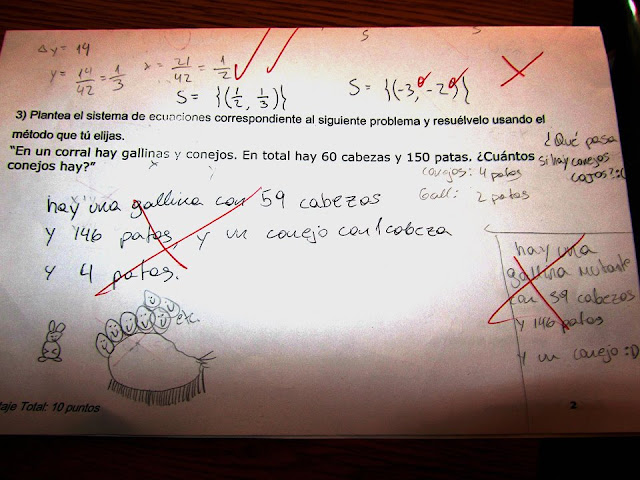 Δy = 14
y = 14/42 = 1/3
x = 21/42 = 1/2
S
S
S = {(1/2, 1/3)}
S = {(-3, -2)}
3) Plantea el sistema de ecuaciones correspondiente al siguiente problema y resuélvelo usando el
método que tú elijas.
"En un corral hay gallinas y conejos. En total hay 60 cabezas y 150 patas. ¿Cuántos
conejos hay?"
x
y
conejos: 4 patas
Gall: 2 patas
¿Qué pasa
si hay conejos
cojos? :(
hay una gallina con 59 cabezas
y 146 patas, y un conejo con 1 cabeza
y 4 patas.
etc.
hay una
gallina mutante
con 59 cabezas
y 146 patas
y un conejo :D
taje Total: 10 puntos
2